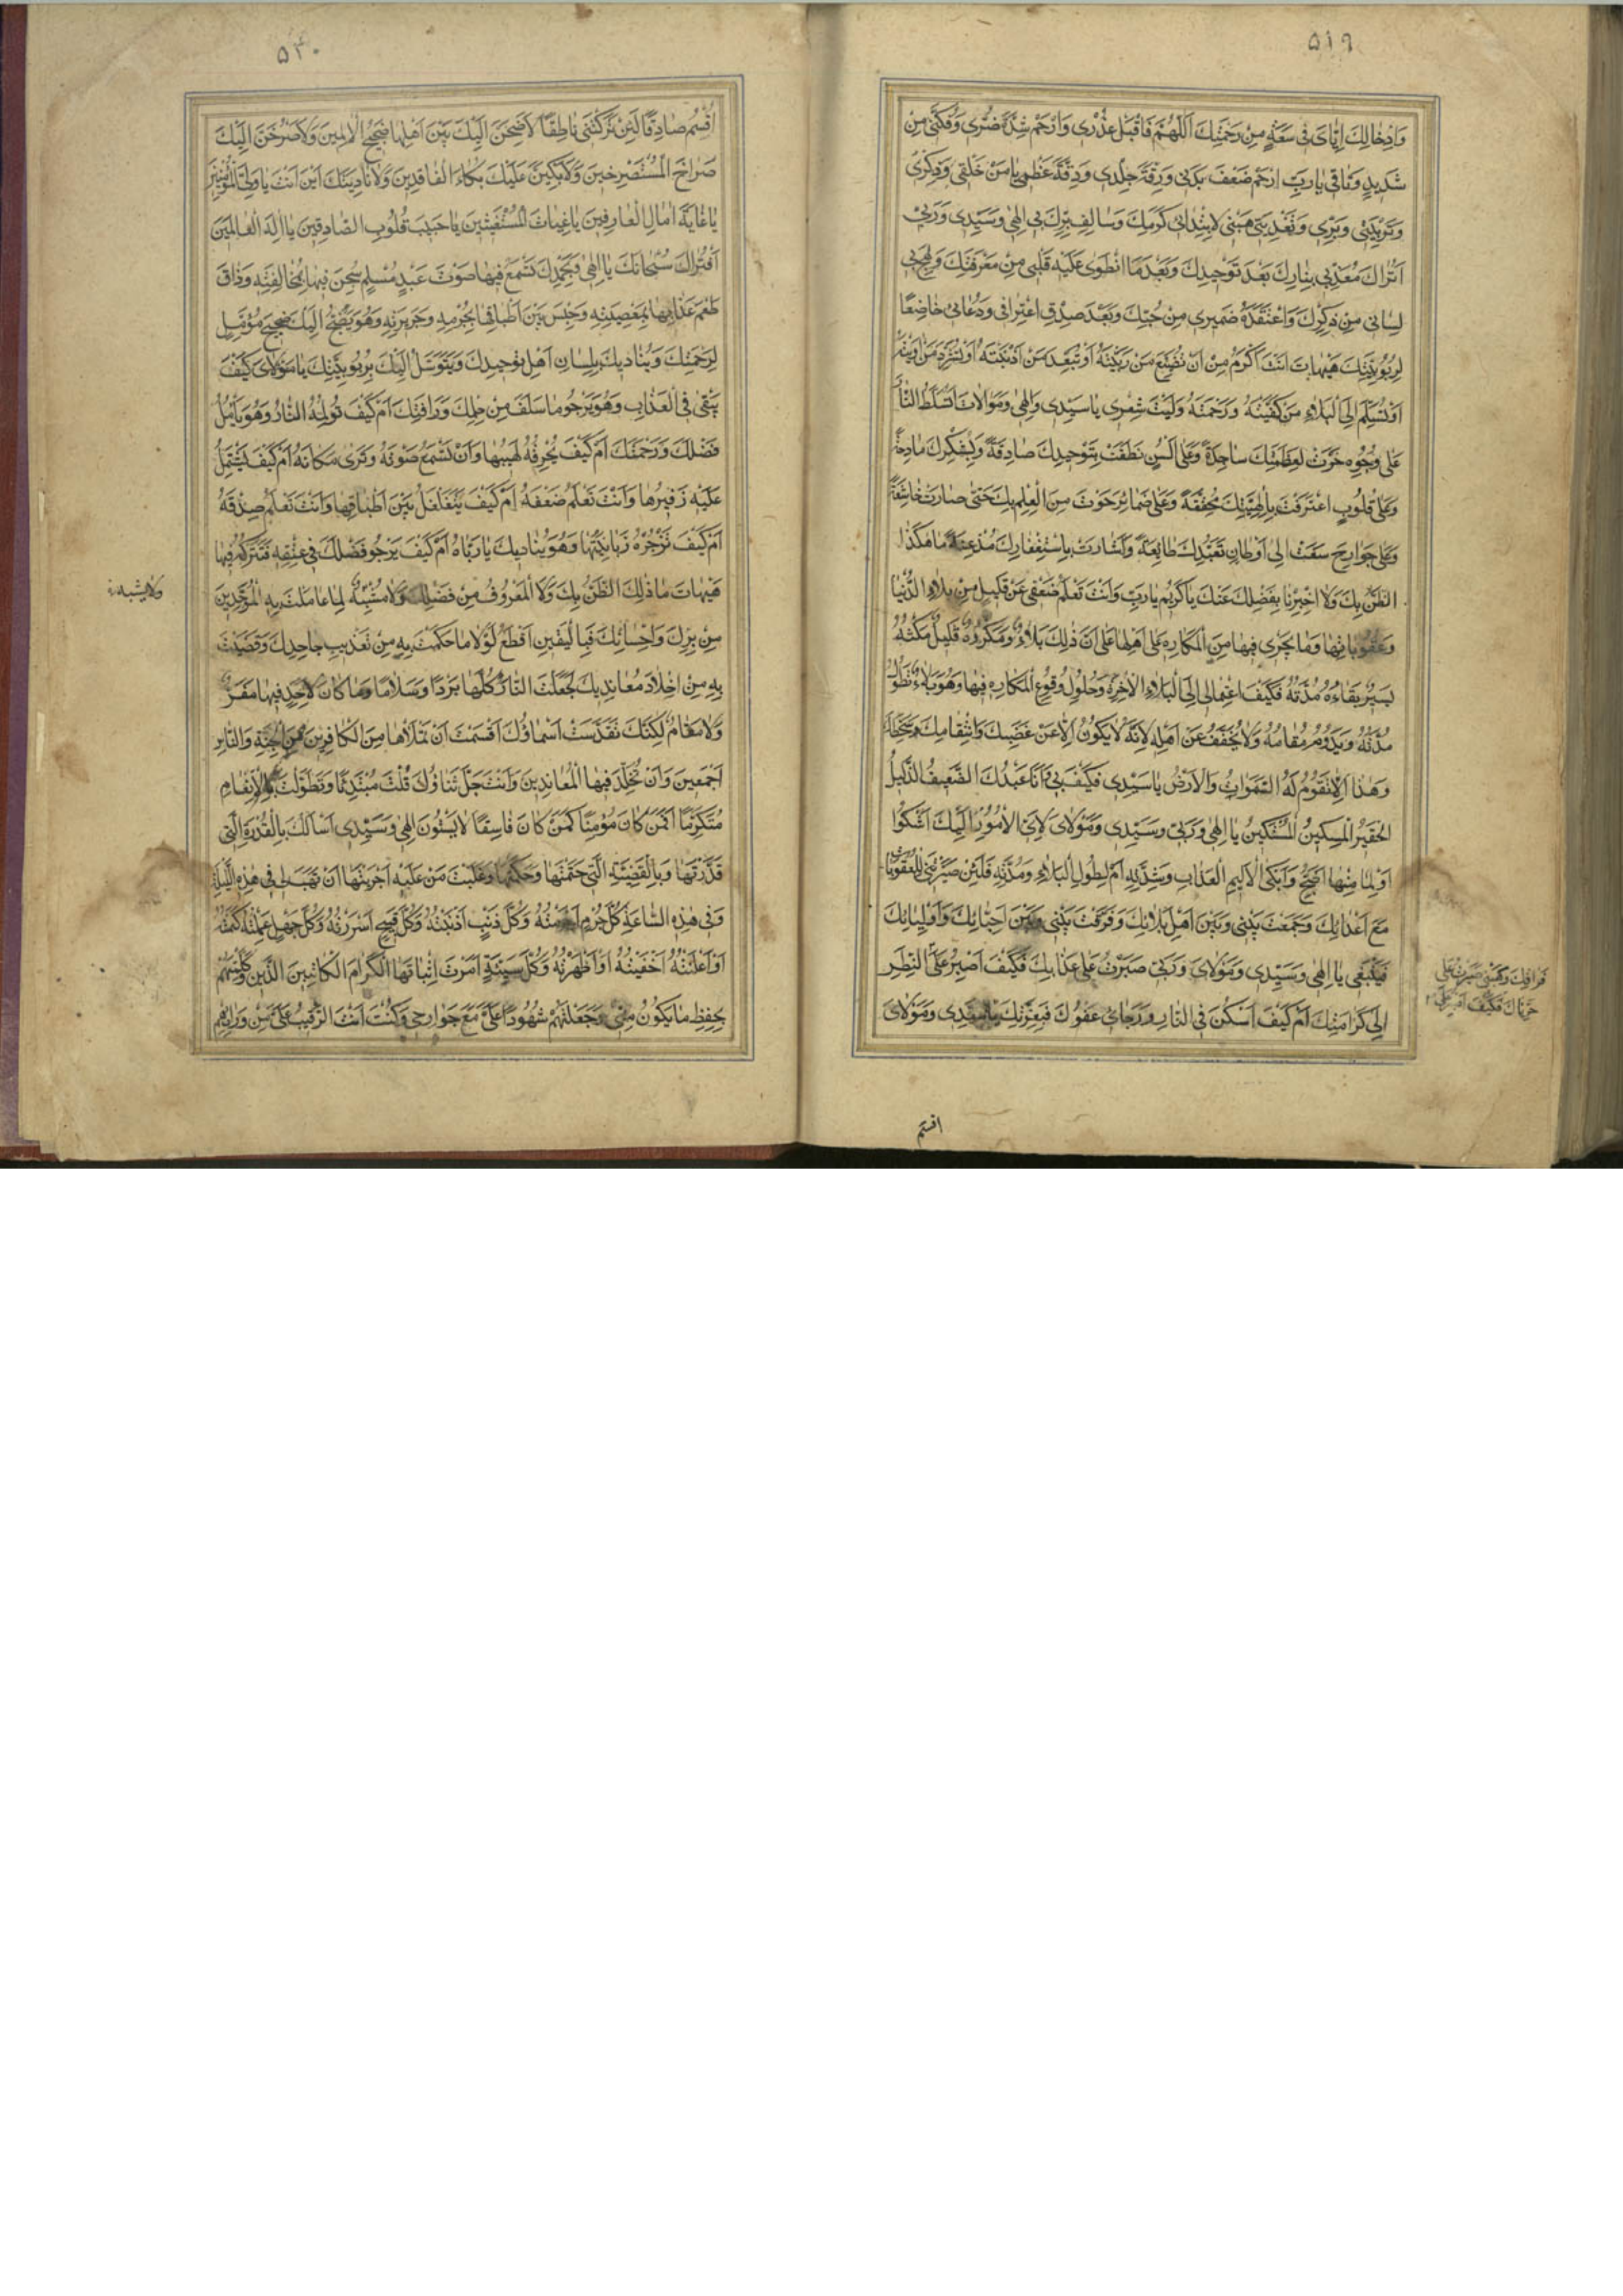 ۵۱۹
وَاِدْخٰالِكَ اِيّٰاىَ فى سَعَةٍ مِنْ رَحْمَتِكَ اَللّٰهُمَّ فَاقْبَلْ عُذْرى وَارْحَمْ شِدَّةَ ضُرّى وَفُكَّنى مِنْ
شَدِيدِ وَثٰاقى يٰارَبِّ ارْحَمْ ضَعْفَ بَدَنى وَرِقَّةَ جِلْدى وَدِقَّةَ عَظْمى يٰامَنْ خَلْقى وَذِكْرى
وَتَرْبِيَتى وَبِرّى وَتَغْذِيَتى هَبْنى لِابْتِدٰاۤئِ كَرَمِكَ وَسٰالِفِ بِرِّكَ بى اِلٰهى وَسَيِّدى وَرَبّى
اَتُرٰاكَ مُعَذِّبى بِنٰارِكَ بَعْدَ تَوْحيدِكَ وَبَعْدَمَا انْطَوىٰ عَلَيْهِ قَلْبى مِنْ مَعْرِفَتِكَ وَلَهِجَ بِهِ
لِسٰانى مِنْ ذِكْرِكَ وَاعْتَقَدَهُ ضَميرى مِنْ حُبِّكَ وَبَعْدَ صِدْقِ اعْتِرٰافى وَدُعٰائى خٰاضِعًا
لِرُبُوبِيَّتِكَ هَيْهٰاتَ اَنْتَ اَكْرَمُ مِنْ اَنْ تُضَيِّعَ مَنْ رَبَّيْتَهُ اَوْ تُبَعِّدَ مَنْ اَدْنَيْتَهُ اَوْ تُشَرِّدَ مَنْ اٰوَيْتَهُ
اَوْ تُسَلِّمَ اِلَى الْبَلٰاءِ مَنْ كَفَيْتَهُ وَرَحِمْتَهُ وَلَيْتَ شِعْرى يٰاسَيِّدى وَاِلٰهى وَمَوْلٰاىَ اَتُسَلِّطُ النّٰارَ
عَلىٰ وُجُوهٍ خَرَّتْ لِعَظَمَتِكَ سٰاجِدَةً وَعَلىٰ اَلْسُنٍ نَطَقَتْ بِتَوْحيدِكَ صٰادِقَةً وَبِشُكْرِكَ مٰادِحَةً
وَعَلىٰ قُلُوبٍ اعْتَرَفَتْ بِاِلٰهِيَّتِكَ مُحَقِّقَةً وَعَلىٰ ضَمٰائِرَ حَوَتْ مِنَ الْعِلْمِ بِكَ حَتّىٰ صٰارَتْ خٰاشِعَةً
وَعَلىٰ جَوٰارِحَ سَعَتْ اِلىٰ اَوْطٰانِ تَعَبُّدِكَ طٰائِعَةً وَاَشٰارَتْ بِاسْتِغْفٰارِكَ مُذْعِنَةً مٰا هٰكَذَا
الظَّنُّ بِكَ وَلٰا اُخْبِرْنٰا بِفَضْلِكَ عَنْكَ يٰاكَرِيمُ يٰارَبِّ وَاَنْتَ تَعْلَمُ ضَعْفى عَنْ قَليلٍ مِنْ بَلٰاءِ الدُّنْيٰا
وَعُقُوبٰاتِهٰا وَمٰا يَجْرى فيهٰا مِنَ الْمَكٰارِهِ عَلىٰ اَهْلِهٰا عَلىٰ اَنَّ ذٰلِكَ بَلٰاءٌ وَمَكْرُوهٌ قَليلٌ مَكْثُهُ
يَسيرٌ بَقٰاءُهُ مُدَّتُهُ فَكَيْفَ احْتِمٰالى اِلَى الْبَلٰاءِ الْاٰخِرَةِ وَحُلُولِ وُقُوعِ الْمَكٰارِهِ فيهٰا وَهُوَ بَلٰاءٌ تَطُولُ
مُدَّتُهُ وَيَدُومُ مَقٰامُهُ وَلٰا يُخَفَّفُ عَنْ اَهْلِهِ لِاَنَّهُ لٰا يَكُونُ اِلّٰا عَنْ غَضَبِكَ وَانْتِقٰامِكَ وَسَخَطِكَ
وَهٰذٰا مٰالٰا تَقُومُ لَهُ السَّمٰوٰاتُ وَالْاَرْضُ يٰاسَيِّدى فَكَيْفَ بى وَاَنَا عَبْدُكَ الضَّعيفُ الذَّليلُ
الْحَقيرُ الْمِسْكينُ الْمُسْتَكينُ يٰا اِلٰهى وَرَبّى وَسَيِّدى وَمَوْلٰاىَ لِاَىِّ الْاُمُورِ اِلَيْكَ اَشْكُوا
اَوْ لِمٰا مِنْهٰا اَضِجُّ وَاَبْكى لِاَليمِ الْعَذٰابِ وَشِدَّتِهِ اَمْ لِطُولِ الْبَلٰاءِ وَمُدَّتِهِ فَلَئِنْ صَيَّرْتَنى لِلْعُقُوبٰاتِ
مَعَ اَعْدٰائِكَ وَجَمَعْتَ بَيْنى وَبَيْنَ اَهْلِ بَلٰائِكَ وَفَرَّقْتَ بَيْنى وَبَيْنَ اَحِبّٰائِكَ وَاَوْلِيٰائِكَ
فَهَبْنى يٰا اِلٰهى وَسَيِّدى وَمَوْلٰاىَ وَرَبّى صَبَرْتُ عَلىٰ عَذٰابِكَ فَكَيْفَ اَصْبِرُ عَنِ النَّظَرِ
اِلىٰ كَرٰامَتِكَ اَمْ كَيْفَ اَسْكُنُ فِى النّٰارِ وَرَجٰائى عَفْوُكَ فَبِعِزَّتِكَ يٰاسَيِّدى وَمَوْلٰاىَ
فراقك وهبنى صبرت على
فكيف اصبر
اقسم
۵۲۰
اُقْسِمُ صٰادِقًا لَئِنْ تَرَكْتَنى نٰاطِقًا لَاَضِجَّنَّ اِلَيْكَ بَيْنَ اَهْلِهٰا ضَجيجَ الْاٰمِلينَ وَلَاَصْرُخَنَّ اِلَيْكَ
صُرٰاخَ الْمُسْتَصْرِخينَ وَلَاَبْكِيَنَّ عَلَيْكَ بُكٰاءَ الْفٰاقِدينَ وَلَاُنٰادِيَنَّكَ اَيْنَ اَنْتَ يٰاوَلِىَّ الْمُؤْمِنينَ
يٰاغٰايَةَ اٰمٰالِ الْعٰارِفينَ يٰاغِيٰاثَ الْمُسْتَغيثينَ يٰاحَبيبَ قُلُوبِ الصّٰادِقينَ يٰااِلٰهَ الْعٰالَمينَ
اَفَتُرٰاكَ سُبْحٰانَكَ يٰااِلٰهى وَبِحَمْدِكَ تَسْمَعُ فيهٰا صَوْتَ عَبْدٍ مُسْلِمٍ سُجِنَ فيهٰا بِمُخٰالَفَتِهِ وَذٰاقَ
طَعْمَ عَذٰابِهٰا بِمَعْصِيَتِهِ وَحُبِسَ بَيْنَ اَطْبٰاقِهٰا بِجُرْمِهِ وَجَريرَتِهِ وَهُوَ يَضِجُّ اِلَيْكَ ضَجيجَ مُؤَمِّلٍ
لِرَحْمَتِكَ وَيُنٰاديكَ بِلِسٰانِ اَهْلِ تَوْحيدِكَ وَيَتَوَسَّلُ اِلَيْكَ بِرُبُوبِيَّتِكَ يٰامَوْلٰاىَ كَيْفَ
يَبْقىٰ فِى الْعَذٰابِ وَهُوَ يَرْجُو مٰا سَلَفَ مِنْ حِلْمِكَ وَرَاْفَتِكَ اَمْ كَيْفَ تُؤْلِمُهُ النّٰارُ وَهُوَ يَاْمُلُ
فَضْلَكَ وَرَحْمَتَكَ اَمْ كَيْفَ يُحْرِقُهُ لَهيبُهٰا وَاَنْتَ تَسْمَعُ صَوْتَهُ وَتَرىٰ مَكٰانَهُ اَمْ كَيْفَ يَشْتَمِلُ
عَلَيْهِ زَفيرُهٰا وَاَنْتَ تَعْلَمُ ضَعْفَهُ اَمْ كَيْفَ يَتَغَلْغَلُ بَيْنَ اَطْبٰاقِهٰا وَاَنْتَ تَعْلَمُ صِدْقَهُ
اَمْ كَيْفَ تَزْجُرُهُ زَبٰانِيَتُهٰا وَهُوَ يُنٰاديكَ يٰارَبّٰاهُ اَمْ كَيْفَ يَرْجُو فَضْلَكَ فى عِتْقِهِ فَتَتْرُكُهُ فيهٰا
هَيْهٰاتَ مٰا ذٰلِكَ الظَّنُّ بِكَ وَلَا الْمَعْرُوفُ مِنْ فَضْلِكَ وَلٰا مُشْبِهٌ لِمٰا عٰامَلْتَ بِهِ الْمُوَحِّدينَ
مِنْ بِرِّكَ وَاِحْسٰانِكَ فَبِالْيَقينِ اَقْطَعُ لَوْلٰا مٰا حَكَمْتَ بِهِ مِنْ تَعْذيبِ جٰاحِديكَ وَقَضَيْتَ
بِهِ مِنْ اِخْلٰادِ مُعٰانِديكَ لَجَعَلْتَ النّٰارَ كُلَّهٰا بَرْدًا وَسَلٰامًا وَمٰا كٰانَ لِاَحَدٍ فيهٰا مَقَرٌّ
وَلٰا مُقٰامٌ لٰكِنَّكَ تَقَدَّسَتْ اَسْمٰاؤُكَ اَقْسَمْتَ اَنْ تَمْلَاَهٰا مِنَ الْكٰافِرينَ مِنَ الْجِنَّةِ وَالنّٰاسِ
اَجْمَعينَ وَاَنْ تُخَلِّدَ فيهٰا الْمُعٰانِدينَ وَاَنْتَ جَلَّ ثَنٰاؤُكَ قُلْتَ مُبْتَدِئًا وَتَطَوَّلْتَ بِالْاِنْعٰامِ
مُتَكَرِّمًا اَفَمَنْ كٰانَ مُؤْمِنًا كَمَنْ كٰانَ فٰاسِقًا لٰا يَسْتَوُنَ اِلٰهى وَسَيِّدى اَسْاَلُكَ بِالْقُدْرَةِ الَّتى
قَدَّرْتَهٰا وَبِالْقَضِيَّةِ الَّتى حَتَمْتَهٰا وَحَكَمْتَهٰا وَغَلَبْتَ مَنْ عَلَيْهِ اَجْرَيْتَهٰا اَنْ تَهَبَ لى فى هٰذِهِ اللَّيْلَةِ
وَفى هٰذِهِ السّٰاعَةِ كُلَّ جُرْمٍ اَجْرَمْتُهُ وَكُلَّ ذَنْبٍ اَذْنَبْتُهُ وَكُلَّ قَبيحٍ اَسْرَرْتُهُ وَكُلَّ جَهْلٍ عَمِلْتُهُ كَتَمْتُهُ
اَوْ اَعْلَنْتُهُ اَخْفَيْتُهُ اَوْ اَظْهَرْتُهُ وَكُلَّ سَيِّئَةٍ اَمَرْتَ بِاِثْبٰاتِهَا الْكِرٰامَ الْكٰاتِبينَ الَّذينَ وَكَّلْتَهُمْ
بِحِفْظِ مٰا يَكُونُ مِنّى وَجَعَلْتَهُمْ شُهُودًا عَلَىَّ مَعَ جَوٰارِحى وَكُنْتَ اَنْتَ الرَّقيبَ عَلَىَّ مِنْ وَرٰائِهِمْ
ولا يشبه